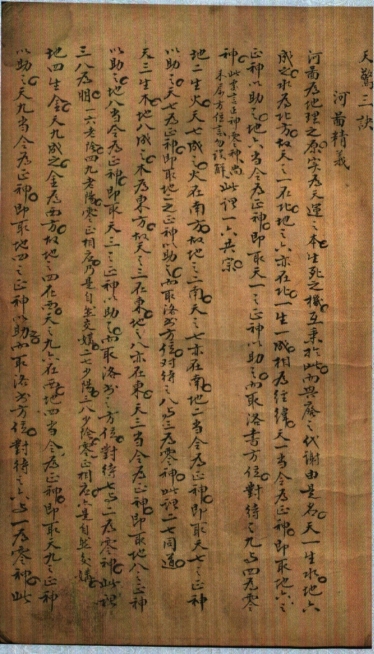 天驚三訣
河圖精義
河圖為地理之原实為天運之本生死之機互乘於此而興廢之代謝由是名天一生水地六
成之水為北方故天之一在北地之六亦在北一生一成相為經緯天一當令為正神即取地六之
正神以助之地六當令為正神即取天一之正神以助之而取洛書方位對待之九与四為零
神此謂一六共宗
地二生火天七成之火在南方故地之二南天之七亦在南地二當令為正神即取天七之正神
以助之天七為正神即取地二之正神以助之而取洛書方位對待之八与三為零神此謂二七同道
天三生木地八成之木為東方故天之三在東地之八亦在東天三當令為正神即取地八之正神
以助之地八當令為正神即取天三之正神以助之而取洛書之方位對待七与二為零神此謂
三八為朋
地四生金天九成之金為西方故地之四在西天之九亦在西地四當令為正神即取天九之正神
以助之天九當令為正神即取地四之正神以助之而取洛書方位對待之六与一為零神此